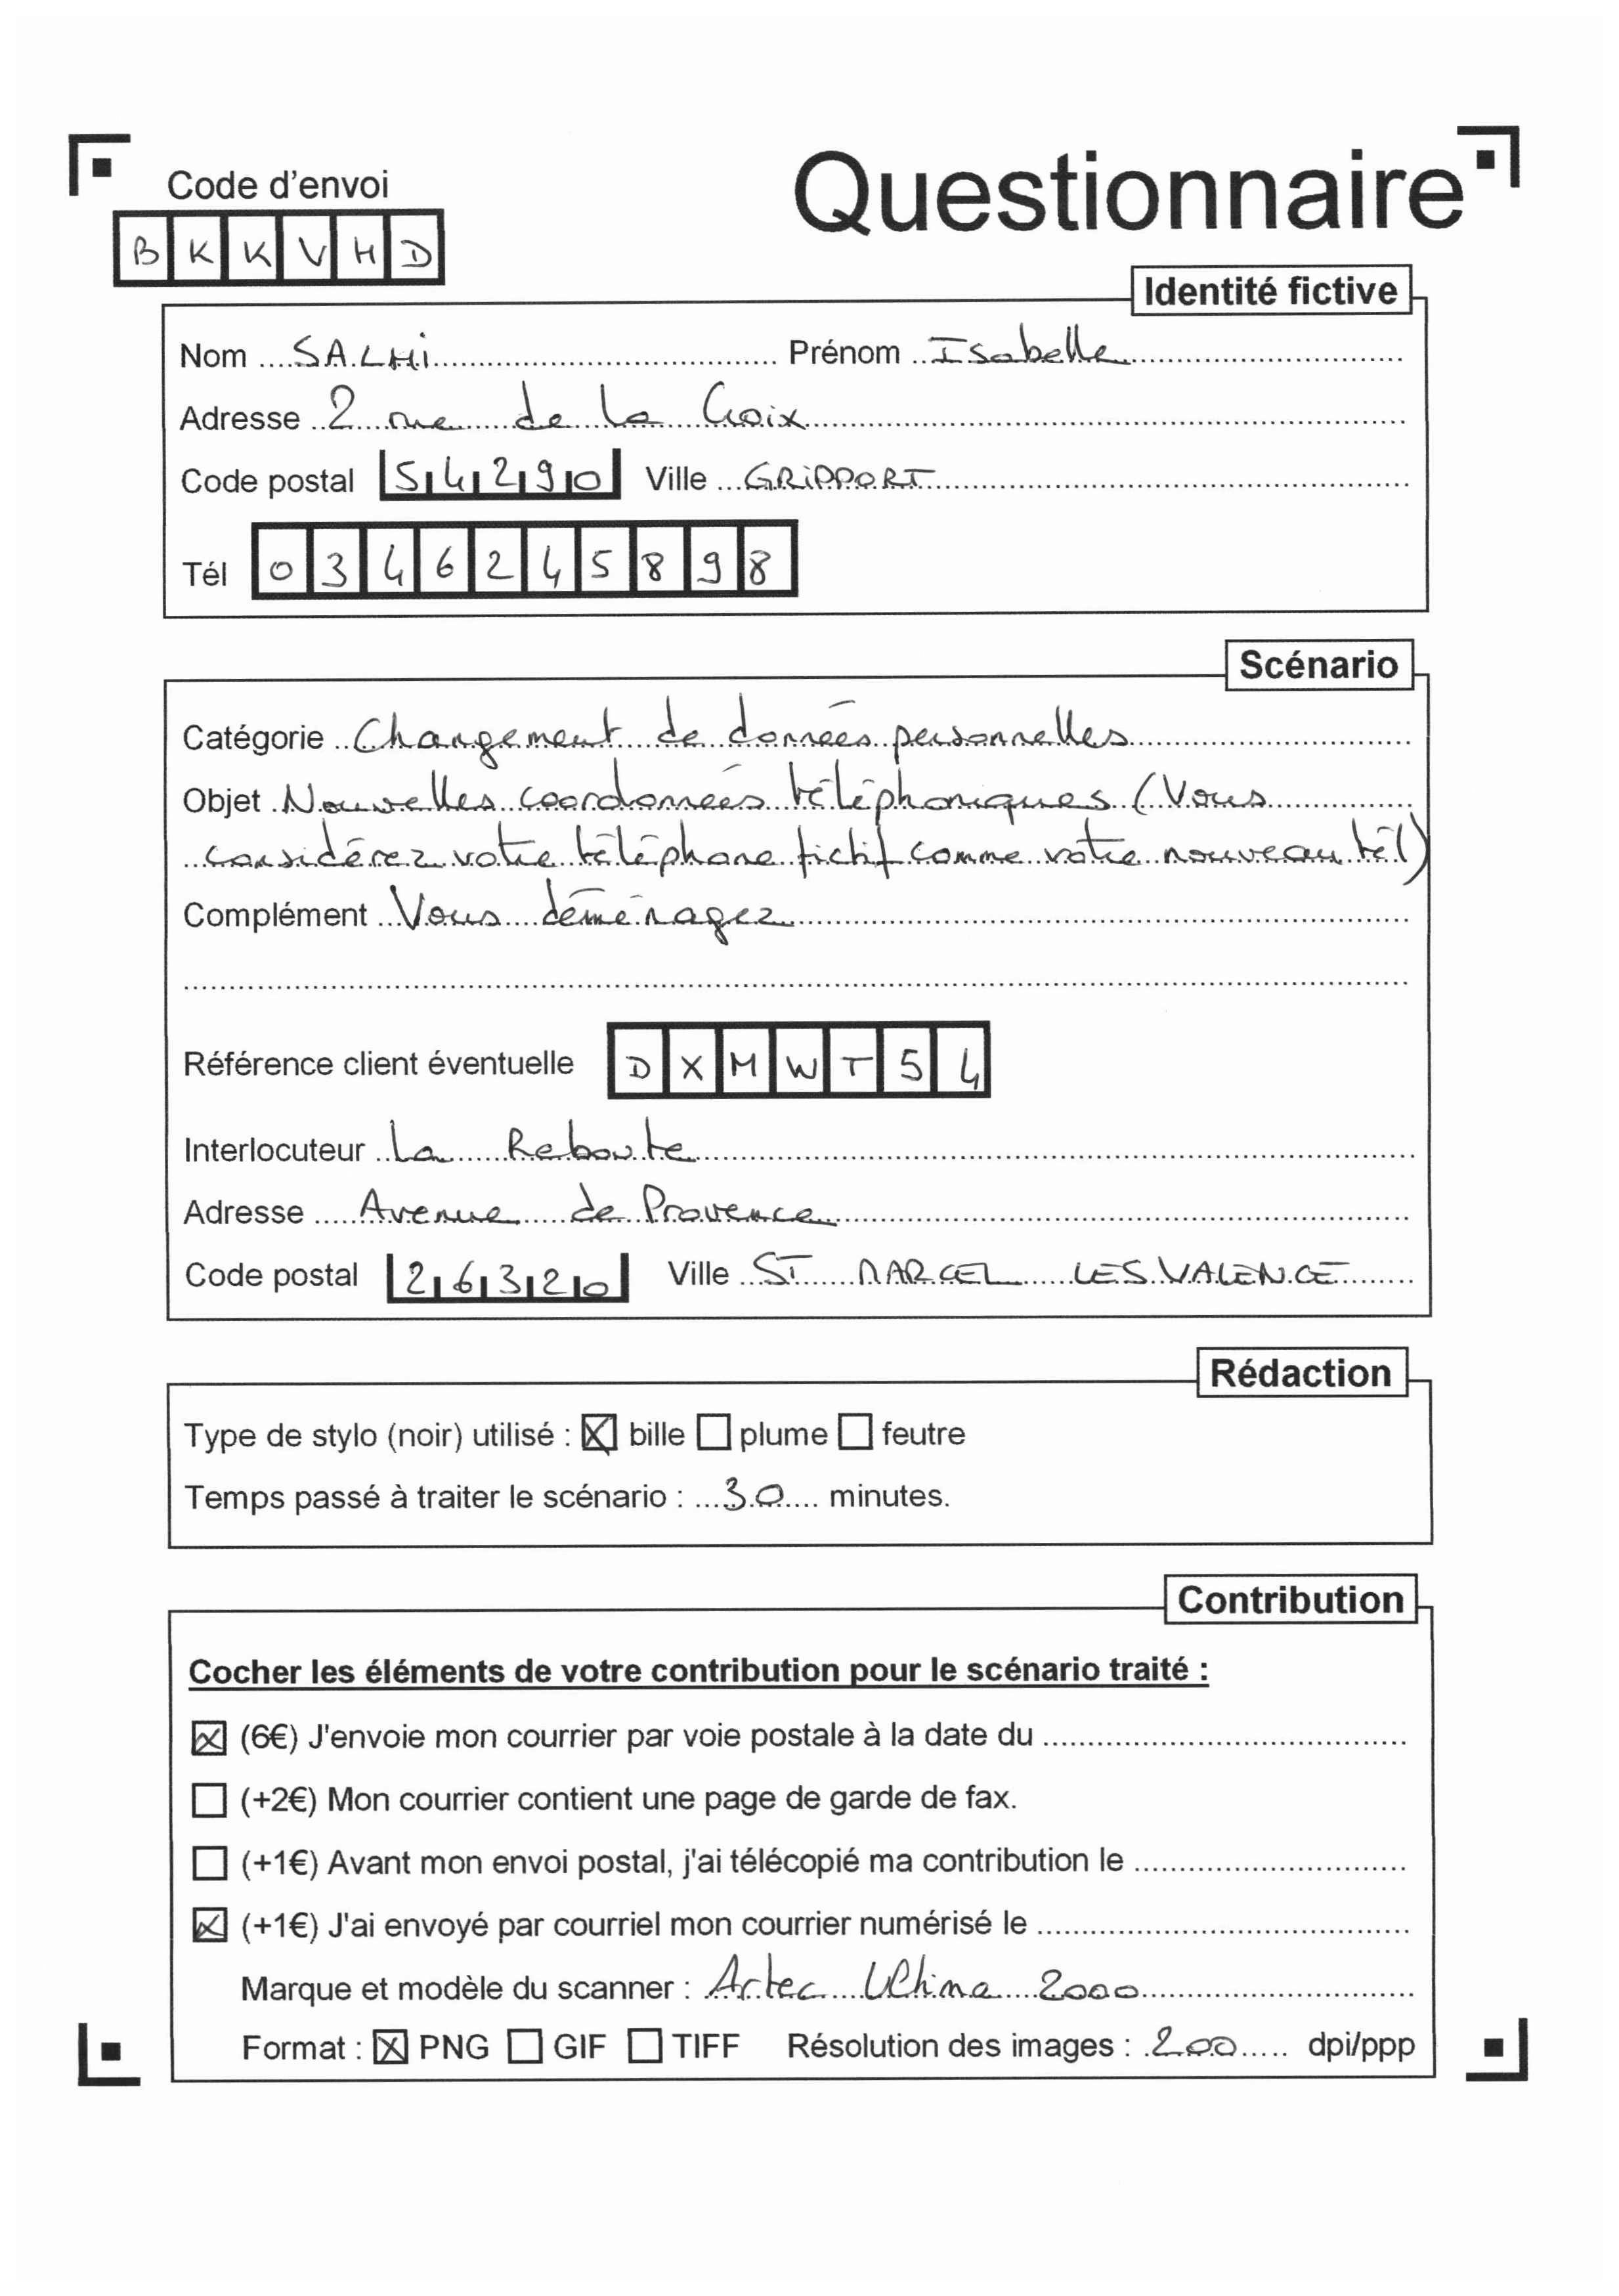 Questionnaire
Code d'envoi
B K K V H D
Identité fictive
Nom SALHi Prénom Isabelle
Adresse 2 rue de la Croix
Code postal 54290 Ville GRiPPORT
Tél 0346245898
Scénario
Catégorie Changement de données personnelles
Objet Nouvelles coordonnées téléphoniques (Vous
considérez votre téléphone fictif comme votre nouveau tél)
Complément Vous déménagez
Référence client éventuelle D X M W T 5 4
Interlocuteur La Reboute
Adresse Avenue de Provence
Code postal 26320 Ville ST MARCEL LES VALENCE
Rédaction
Type de stylo (noir) utilisé : ☒ bille ☐ plume ☐ feutre
Temps passé à traiter le scénario : 30 minutes.
Contribution
Cocher les éléments de votre contribution pour le scénario traité :
☒ (6€) J'envoie mon courrier par voie postale à la date du
☐ (+2€) Mon courrier contient une page de garde de fax.
☐ (+1€) Avant mon envoi postal, j'ai télécopié ma contribution le
☒ (+1€) J'ai envoyé par courriel mon courrier numérisé le
Marque et modèle du scanner : Artec Ultima 2000
Format : ☒ PNG ☐ GIF ☐ TIFF Résolution des images : 200 dpi/ppp